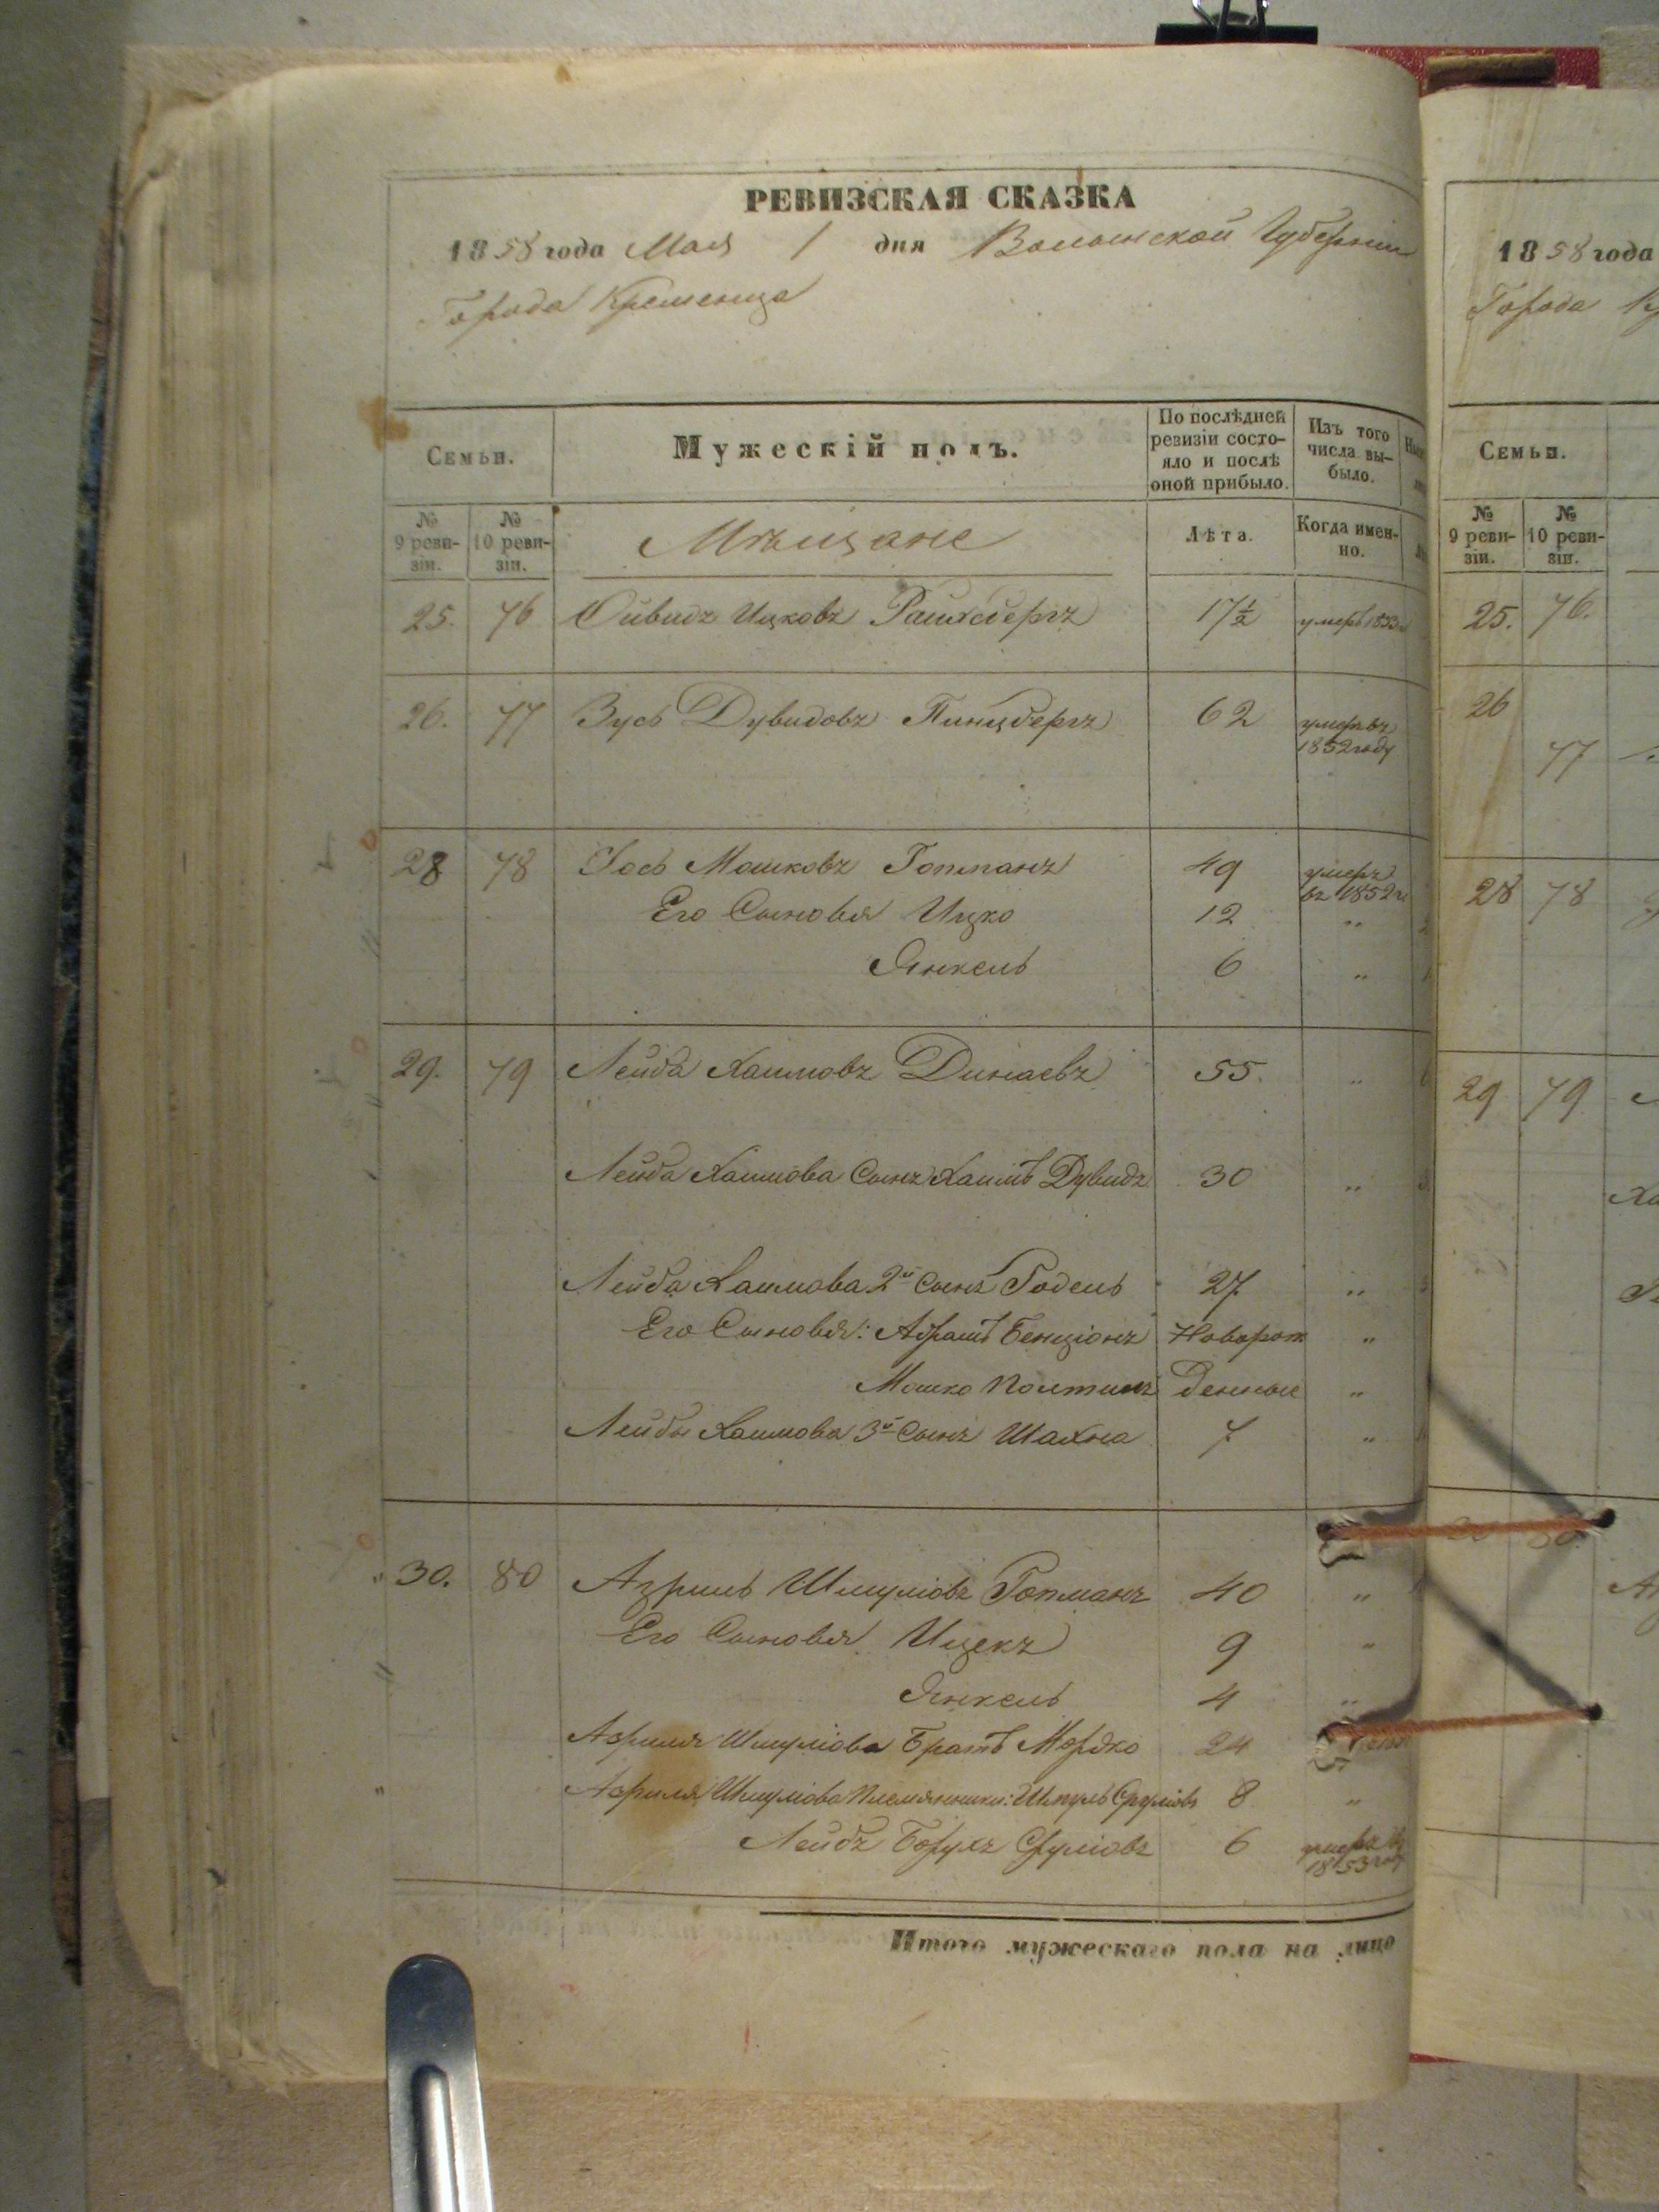 РЕВИЗСКАЯ СКАЗКА
1858 года Мая 1 дня Волынской Губернии
Города Кременца
Семьи.
Мужескій полъ.
По послѣдней ревизіи состо-
яло и послѣ
оной прибыло.
Изъ того
числа вы-
было.
№
9 реви-
зіи.
№
10 реви-
зіи.
Мѣщане
Лѣта.
Когда имен-
но.
25. 76 Ицковъ 17½ умеръ 1853
26. 77 Зусь Дувидовъ Пинцбергъ 62 умеръ въ
1852 году
28 78 Іось Мошковъ 49 умеръ
въ 1852 г
Его Сыновья Ицко 12 "
Янкель 6 "
29. 79 Лейба Хаимовъ Динаевъ 55. "
Лейба Хаимова Сынъ Хаимъ Дувидъ 30 "
Лейба Хаимова 2й Сынъ Годель 27. "
Его Сыновья: Абрамъ Бенціонъ Новорож "
Мошко денные "
Лейбы Хаимова 3й Сынъ Шахна 7. "
30. 80 Азриль Шмуліовъ 40 "
Его Сыновья Ицекъ 9 "
Янкель 4 "
Азриля Шмуліова Братъ Мордко 24
Азриля Шмуліова Племянники: Шмуль Сруліовъ 8 "
Лейбъ Борухъ Сруліовъ 6 умеръ въ
1853 году
Итого мужескаго пола на лицо
1858 года
Города
Семьи.
№
9 реви-
зіи.
№
10 реви-
зіи.
25. 76.
26
77
28 78
29 79